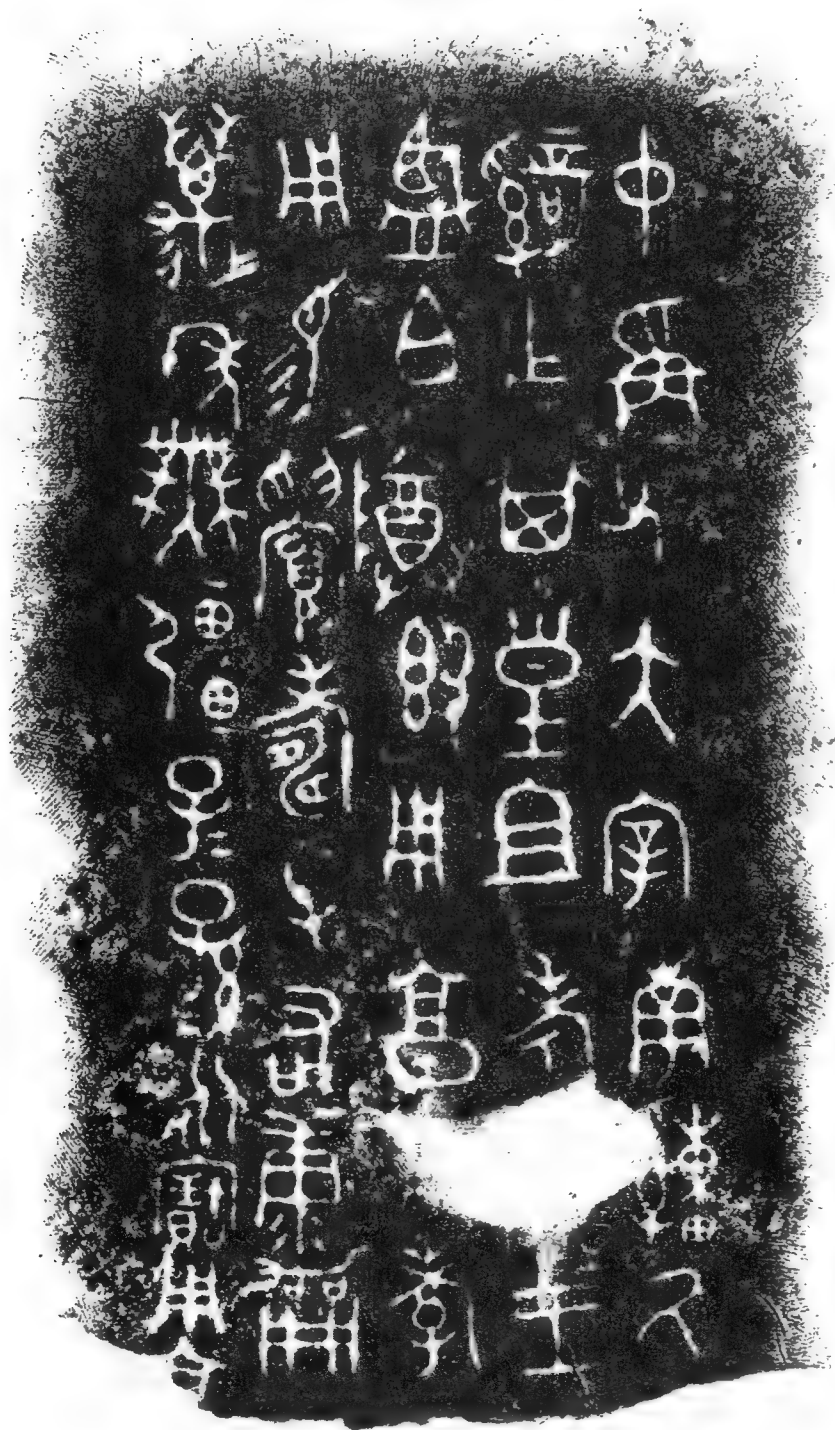 中爯父大宰南申厥
𤔲乍其皇且考王
監白尊𣪘用享孝
用易眉壽屯右康
萬年無彊子=孫=永寶用享